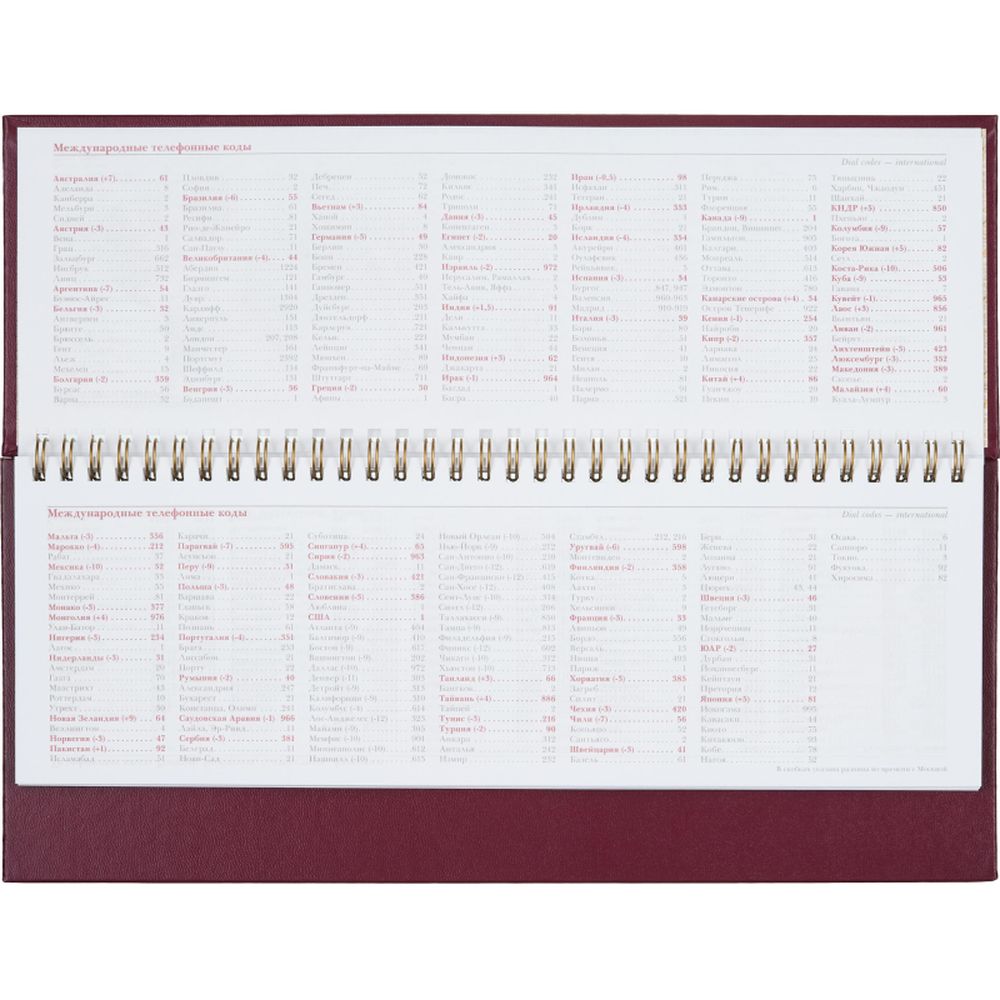 Международные телефонные коды
Dial codes — international
Австралия (+7) 61
Аделаида 8
Канберра 2
Мельбурн 3
Сидней 2
Австрия (-3) 43
Вена 1
Грац 316
Зальцбург 662
Инсбрук 512
Линц 732
Аргентина (-7) 54
Буэнос-Айрес 11
Бельгия (-3) 32
Антверпен 3
Брюгге 50
Брюссель 2
Гент 9
Льеж 4
Мехелен 15
Болгария (-2) 359
Бургас 56
Варна 52
Пловдив 32
София 2
Бразилия (-6) 55
Бразилиа 61
Ресифи 81
Рио-де-Жанейро 21
Сальвадор 71
Сан-Паулу 11
Великобритания (-4) 44
Абердин 1224
Бирмингем 121
Глазго 141
Дувр 1304
Кардифф 2920
Ливерпуль 151
Лидс 113
Лондон 207, 208
Манчестер 161
Портсмут 2392
Шеффилд 114
Эдинбург 131
Венгрия (-3) 36
Будапешт 1
Дебрецен 52
Печ 72
Сегед 62
Вьетнам (+3) 84
Ханой 4
Хошимин 8
Германия (-3) 49
Берлин 30
Бонн 228
Бремен 421
Гамбург 40
Ганновер 511
Дрезден 351
Дуйсбург 203
Дюссельдорф 211
Карлсруэ 721
Кельн 221
Лейпциг 341
Мюнхен 89
Франкфурт-на-Майне 69
Штутгарт 711
Греция (-2) 30
Афины 1
Домокос 232
Килкис 341
Родос 241
Триполи 71
Дания (-3) 45
Копенгаген 3
Египет (-2) 20
Александрия 3
Каир 2
Израиль (-2) 972
Иерусалим, Рамаллах 2
Тель-Авив, Яффа 3
Хайфа 4
Индия (+1,5) 91
Дели 11
Калькутта 33
Мумбаи 22
Ченнаи 44
Индонезия (+3) 62
Джакарта 21
Ирак (-1) 964
Багдад 1
Басра 40
Иран (-0,5) 98
Исфахан 311
Тегеран 21
Ирландия (-4) 353
Дублин 1
Корк 21
Исландия (-4) 354
Акурейри 461
Оулафсвик 456
Рейкьявик 5
Испания (-3) 34
Бургос 847, 947
Валенсия 960-963
Мадрид 910-919
Италия (-3) 39
Бари 80
Болонья 51
Венеция 41
Генуя 10
Милан 2
Неаполь 81
Палермо 91
Парма 521
Перуджа 75
Рим 6
Турин 11
Флоренция 55
Канада (-9) 1
Брандон, Виннипег 204
Гамильтон 905
Калгари 403
Монреаль 514
Оттава 613
Торонто 416
Эдмонтон 780
Канарские острова (+4) 34
Остров Тенерифе 922
Кения (-1) 254
Найроби 20
Кипр (-2) 357
Ларнака 24
Лимассол 25
Никосия 22
Китай (+4) 86
Гуанчжоу 20
Пекин 10
Тяньцзинь 22
Харбин, Чжаодун 451
Шанхай 21
КНДР (+5) 850
Пхеньян 2
Колумбия (-9) 57
Богота 1
Корея Южная (+5) 82
Сеул 2
Коста-Рика (-10) 506
Куба (-9) 53
Гавана 7
Кувейт (-1) 965
Лаос (+3) 856
Вьентьян 21
Ливан (-2) 961
Бейрут 1
Лихтенштейн (-3) 423
Люксембург (-3) 352
Македония (-3) 389
Скопье 2
Малайзия (+4) 60
Куала-Лумпур 3
Международные телефонные коды
Dial codes — international
Мальта (-3) 356
Марокко (-4) 212
Рабат 37
Мексика (-10) 52
Гвадалахара 33
Мехико 55
Монтеррей 81
Монако (-3) 377
Монголия (+4) 976
Улан-Батор 11
Нигерия (-3) 234
Лагос 1
Нидерланды (-3) 31
Амстердам 20
Гаага 70
Маастрихт 43
Роттердам 10
Утрехт 30
Новая Зеландия (+9) 64
Веллингтон 4
Норвегия (-3) 47
Пакистан (+1) 92
Исламабад 51
Карачи 21
Парагвай (-7) 595
Асунсьон 21
Перу (-9) 51
Лима 1
Польша (-3) 48
Варшава 22
Гданьск 58
Краков 12
Познань 61
Португалия (-4) 351
Брага 253
Лиссабон 21
Порту 22
Румыния (-2) 40
Александрия 247
Бухарест 21
Констанца, Олимп 241
Саудовская Аравия (-1) 966
Лайла, Эр-Рияд 1
Сербия (-3) 381
Белград 11
Нови-Сад 21
Суботица 24
Сингапур (+4) 65
Сирия (-2) 963
Дамаск 11
Словакия (-3) 421
Братислава 2
Словения (-3) 386
Любляна 1
США 1
Атланта (-9) 404
Балтимор (-9) 410
Бостон (-9) 617
Вашингтон (-9) 202
Даллас (-10) 972
Денвер (-11) 303
Детройт (-9) 313
Калифорния (-9) 310
Колумбус (-9) 614
Лос-Анджелес (-12) 323
Майами (-9) 305
Мемфис (-10) 901
Миннеаполис (-10) 612
Нашвилл (-10) 615
Новый Орлеан (-10) 504
Нью-Йорк (-9) 212
Сан-Антонио (-10) 210
Сан-Диего (-12) 619
Сан-Франциско (-12) 415
Сан-Хосе (-12) 408
Сент-Луис (-10) 314
Сиэтл (-12) 206
Таллахасси (-9) 850
Тампа (-9) 813
Филадельфия (-9) 215
Финикс (-12) 602
Чикаго (-10) 312
Хьюстон (-10) 713
Таиланд (+3) 66
Бангкок 2
Тайвань (+4) 886
Тайпей 2
Тунис (-3) 216
Турция (-2) 90
Анкара 312
Анталья 242
Измир 232
Стамбул 212, 216
Уругвай (-6) 598
Монтевидео 2
Финляндия (-2) 358
Котка 5
Лахти 3
Турку 2
Хельсинки 9
Франция (-3) 33
Авиньон 49
Бордо 556
Версаль 13
Ницца 493
Париж 1
Хорватия (-3) 385
Загреб 1
Сплит 21
Чехия (-3) 420
Чили (-7) 56
Кокимбо 52
Сантьяго 2
Швейцария (-3) 41
Базель 61
Берн 31
Женева 22
Лозанна 21
Лугано 91
Люцерн 41
Цюрих 43, 44
Швеция (-3) 46
Гетеборг 31
Мальме 40
Норрчёпинг 11
Стокгольм 8
ЮАР (-2) 27
Дурбан 31
Йоханнесбург 11
Кейптаун 21
Претория 12
Япония (+5) 81
Иокогама 995
Кавасаки 44
Киото 75
Китакюсю 93
Кобе 78
Нагоя 52
Осака 6
Саппоро 11
Токио 3
Фукуока 92
Хиросима 82
В скобках указана разница во времени с Москвой.